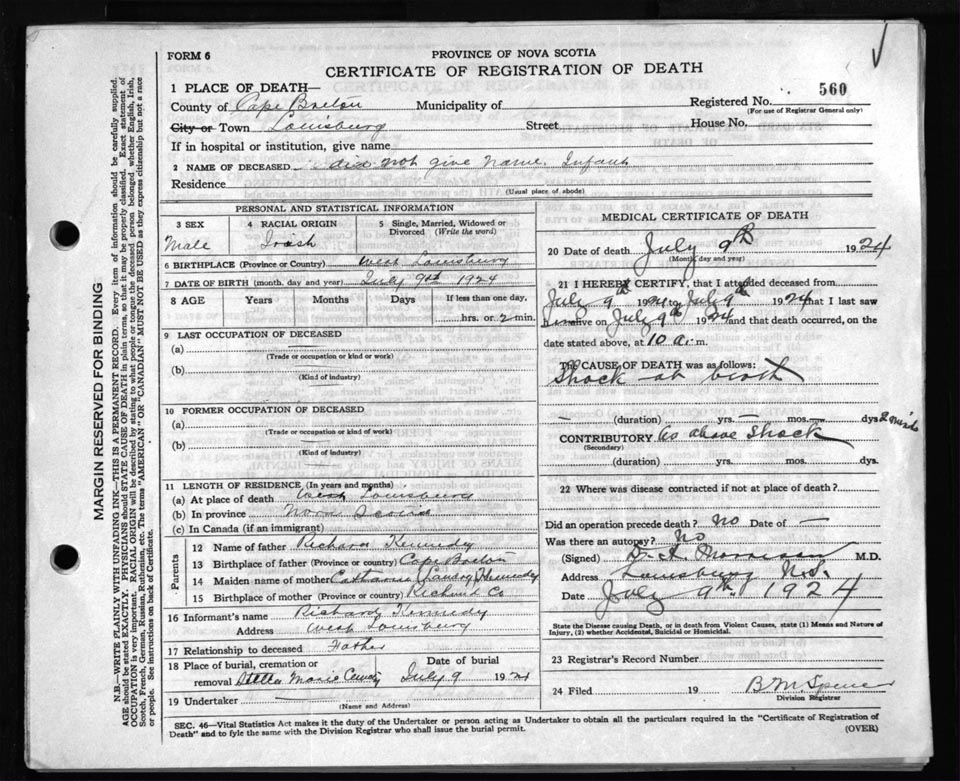 FORM 6
PROVINCE OF NOVA SCOTIA
CERTIFICATE OF REGISTRATION OF DEATH
1 PLACE OF DEATH—
County of Cape Breton Municipality of Registered No. 560
(For use of Registrar General only)
City or Town Louisburg Street House No.
If in hospital or institution, give name
2 NAME OF DECEASED did not give name. Infant
Residence
(Usual place of abode)
PERSONAL AND STATISTICAL INFORMATION
3 SEX 4 RACIAL ORIGIN 5 Single, Married, Widowed or Divorced (Write the word)
Male Irish
6 BIRTHPLACE (Province or Country) West Louisburg
7 DATE OF BIRTH (month, day and year) July 9th 1924
8 AGE Years Months Days If less than one day,
hrs. or 2 min.
9 LAST OCCUPATION OF DECEASED
(a)
(Trade or occupation or kind of work)
(b)
(Kind of industry)
10 FORMER OCCUPATION OF DECEASED
(a)
(Trade or occupation or kind of work)
(b)
(Kind of industry)
11 LENGTH OF RESIDENCE (In years and months)
(a) At place of death West Louisburg
(b) In province Nova Scotia
(c) In Canada (if an immigrant)
Parents
12 Name of father Richard Kennedy
13 Birthplace of father (Province or country) Cape Breton
14 Maiden name of mother Kennedy
15 Birthplace of mother (Province or country) Richmond Co
16 Informant's name Richard Kennedy
Address West Louisburg
17 Relationship to deceased Father
18 Place of burial, cremation or removal Stella Maris Date of burial July 9 1924
19 Undertaker
(Name and Address)
MEDICAL CERTIFICATE OF DEATH
20 Date of death July 9th 1924
(Month, day and year)
21 I HEREBY CERTIFY, that I attended deceased from
July 9th 1924 to July 9th 1924 that I last saw
him alive on July 9th 1924 and that death occurred, on
date stated above, at 10 a. m.
The CAUSE OF DEATH was as follows:
Shock at birth
(duration) yrs. mos. dys. 2 mins
CONTRIBUTORY As above Shock
(Secondary)
(duration) yrs. mos. dys.
22 Where was disease contracted if not at place of death?
Did an operation precede death? No Date of —
Was there an autopsy? No
(Signed) Morrison M.D.
Address Louisburg N.S.
Date July 9th, 1924
State the Disease causing Death, or in death from Violent Causes, state (1) Means and Nature of Injury, (2) whether Accidental, Suicidal or Homicidal.
23 Registrar's Record Number
24 Filed 19 B M Spencer
Division Registrar
SEC. 46—Vital Statistics Act makes it the duty of the Undertaker or person acting as Undertaker to obtain all the particulars required in the "Certificate of Registration of
Death" and to fyle the same with the Division Registrar who shall issue the burial permit.
(OVER)
MARGIN RESERVED FOR BINDING
N.B.—WRITE PLAINLY WITH UNFADING INK—THIS IS A PERMANENT RECORD. Every item of information should be carefully supplied.
AGE should be stated EXACTLY. PHYSICIANS should STATE CAUSE OF DEATH in plain terms, so that it may be properly classified. Exact statement of
OCCUPATION is very important. RACIAL ORIGIN will be described by stating to what people or tongue the deceased person belonged whether English, Irish,
Scotch, French, German, Russian, Ruthenian, etc. The terms "AMERICAN" OR "CANADIAN" MUST NOT BE USED as they express citizenship but not a race
or people. See instructions on back of Certificate.